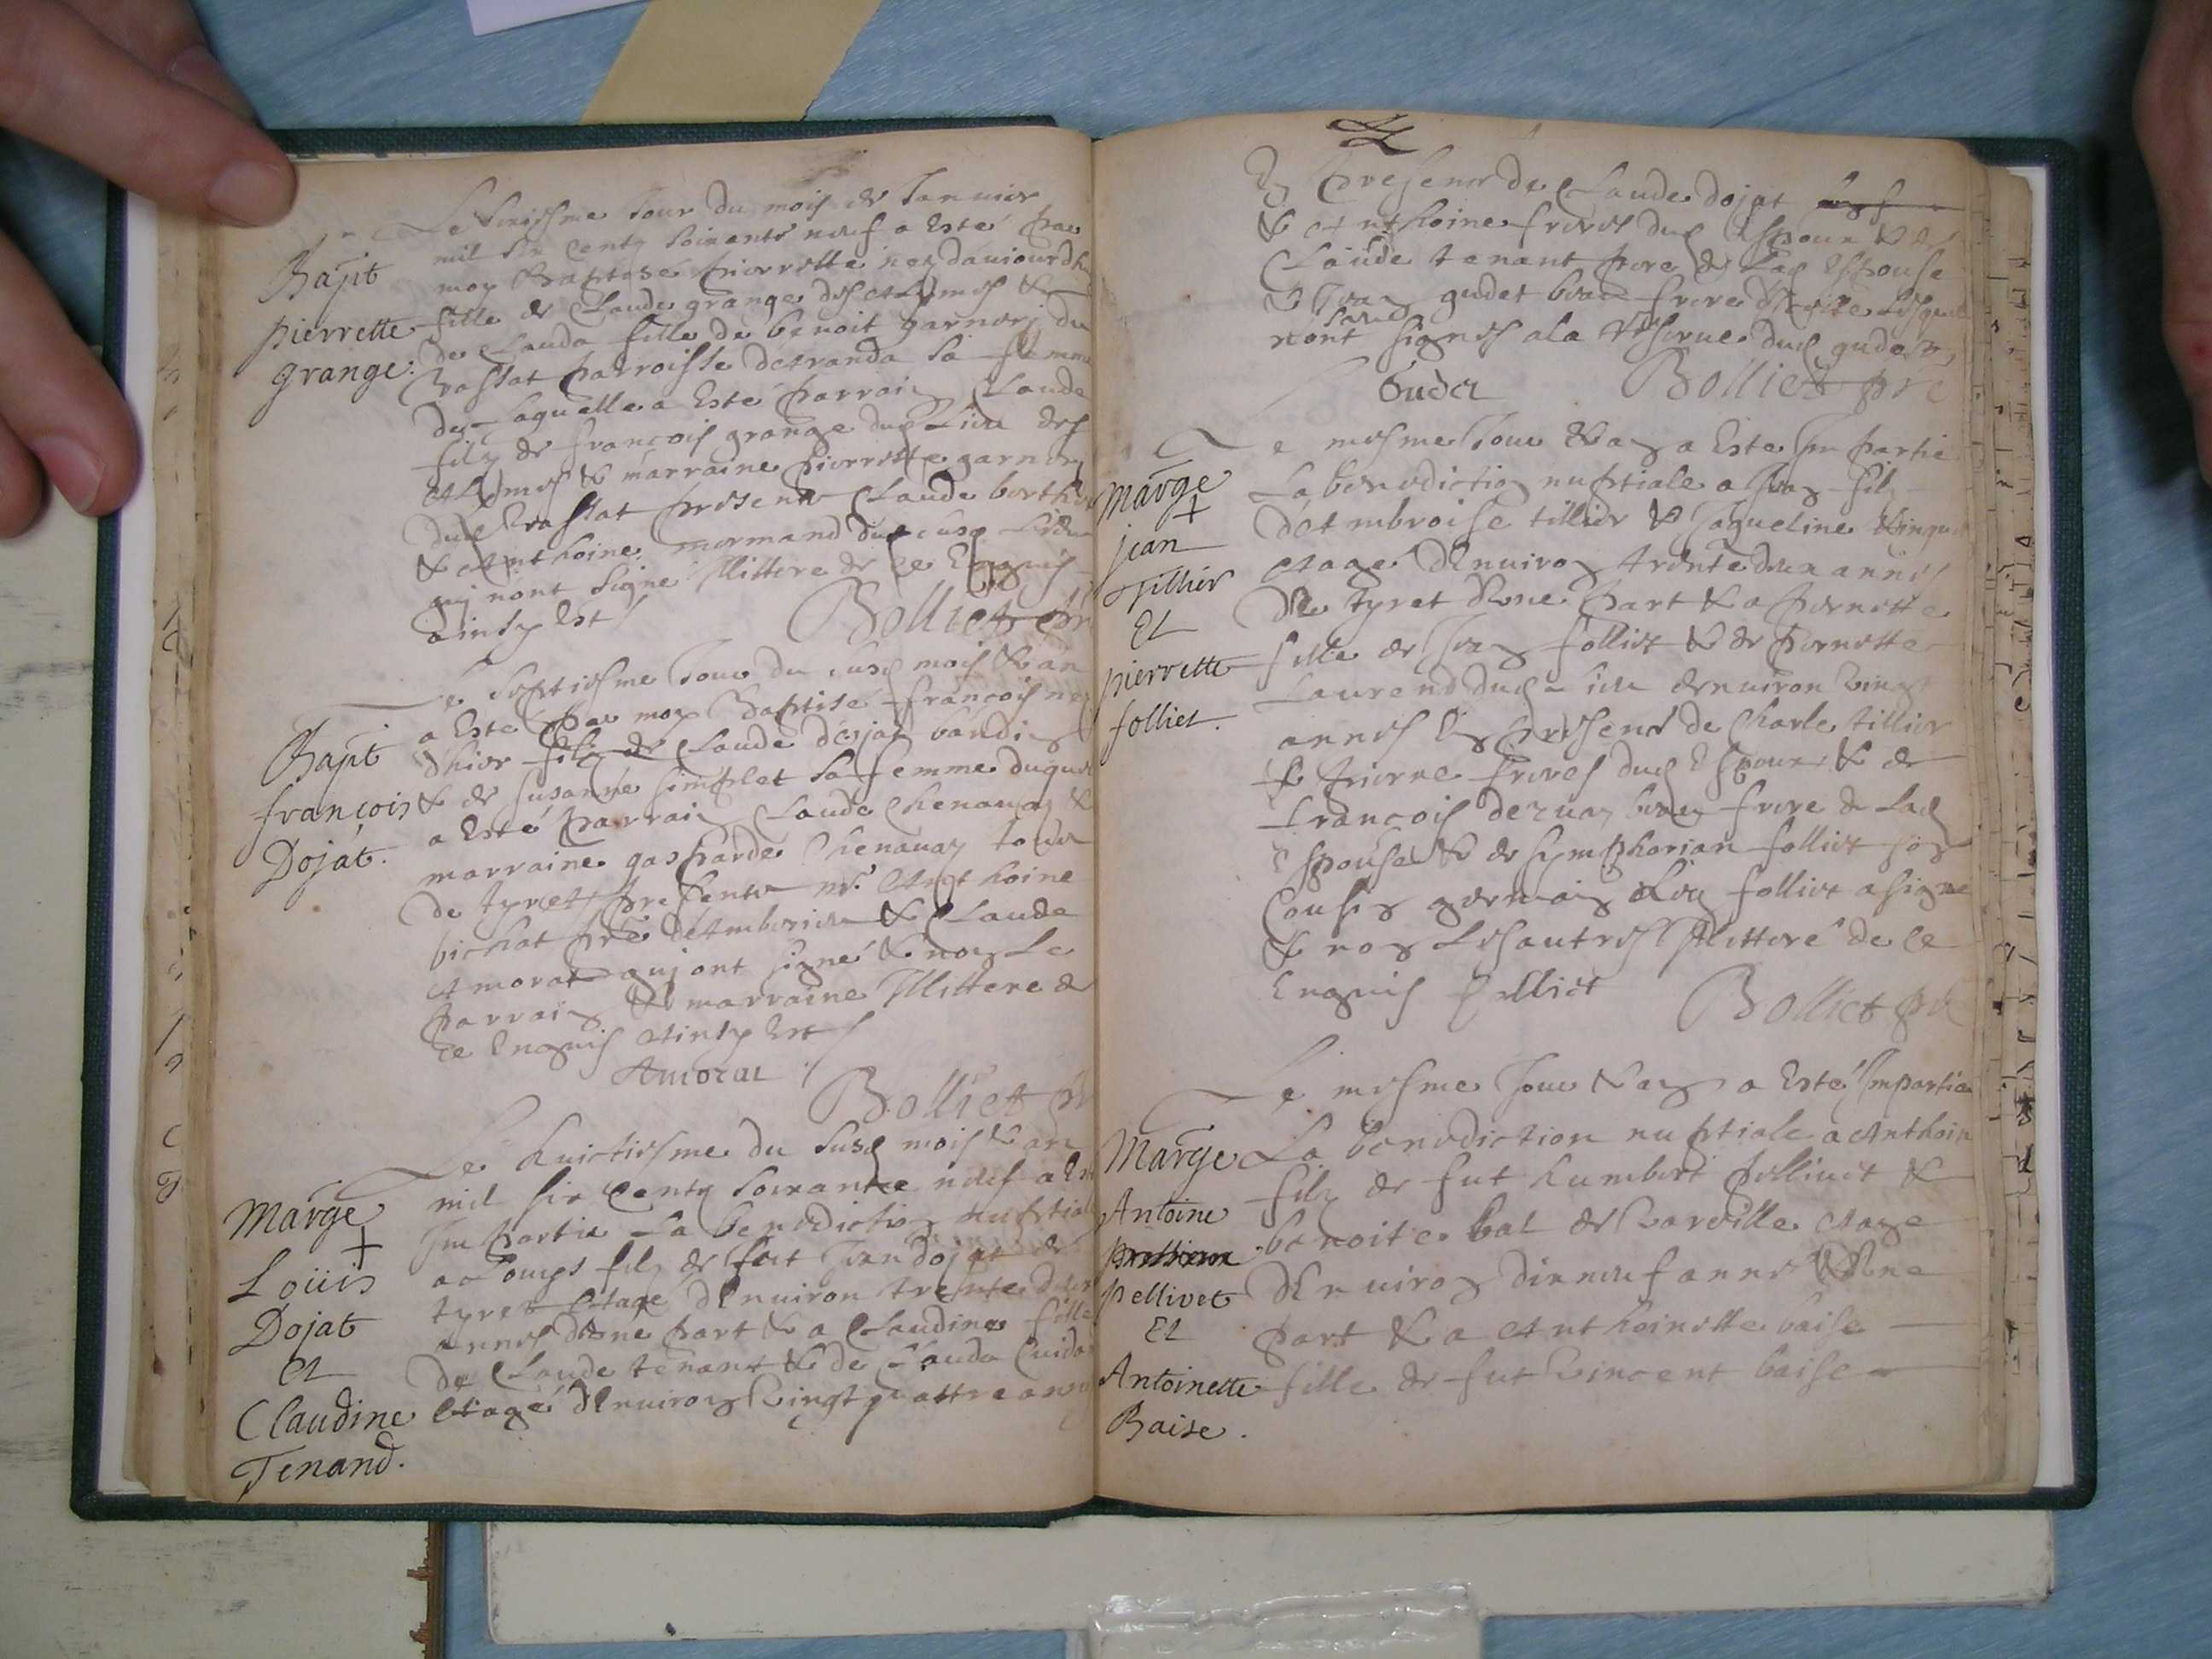 Bapt
pierrette
grange.
Le sixiesme Jour du mois de Januier
mil six centz soixante neuf a Esté par
moy Baptisé pierrette nez daujourdhu
fille de Claude grange des &
de Clauda fille de benoit garnerj du
parroisse detranda sa femme
de Laquelle a Esté parrain Claude
filz de francois grange dud Lieu des
& marraine pierrette garnerj
dud presentz Claude
& Anthoine mormand du susd Lieu
quj nont signé Illittere de ce Enquis
ainsy Est
Bolliet pr
Bapt
francois
Dojat.
Le septiesme Jour du susd mois & an
a Esté par moy Baptisé francois nez
dhier filz de Claude desjat
& de susanne simplet sa femme duquel
a Esté parrain Claude Chenauaz &
marraine gasparde Chenauaz tous
de tyret presentz mre Anthoine
bichat pre & Claude
Amorat quj ont signé & non Le
parrain & marraine Illittere de
ce Enquis Ainsy Est
Amorat
Bolliet pr
Marge
+
Loüis
Dojat
Et
Claudine
Tenand.
Le huictiesme du susd mois & an
mil six Centz soixante neuf a Est
Impartie La benediction nuptiale
a Louys filz de fut Jean dojat de
tyret Etagé dEnuiron trente deux
annes dune part & a Claudine fille
de Claude tenant & de Clauda
Etagé dEnuiron Vingt quattre annes
En presence de Claude dojat
& Anthoine freres dud Espoux & de
Claude tenant pere de Lad Espouse
& Jean gudet beau frere Lesquels
nont signes a la reserue dud gudet,
Gudet
Bolliet pre
Marge
+
jean
Tillier
Et
pierrette
folliet.
Le mesme Jour & an a Esté Impartie
La benediction nuptiale a Jean filz
d'Ambroise tillier & Jaqueline
Etagé dEnuiron trente deux annes
de tyret dune part & a pernette
fille de Jean folliet & de pernette
Laurend dud Lieu denuiron Vingt
annes En presence de Charle tillier
& pierre freres dud Espoux & de
francois beau frere de Lad
Espouse & de symphorian folliet son
Cousin germain folliet a signé
& non Les autres Illitteré de ce
Enquis folliet
Bolliet pre
Marge
Antoine
pellivet
Et
Antoinette
Baise.
Le mesme Jour & an a Esté Impartie
La benediction nuptiale a Anthoin
filz de fut humbert pelliuet &
benoite bal de Etagé
dEnuiron dixneuf annes dune
part & a Anthoinette baise
fille de fut Vincent baise